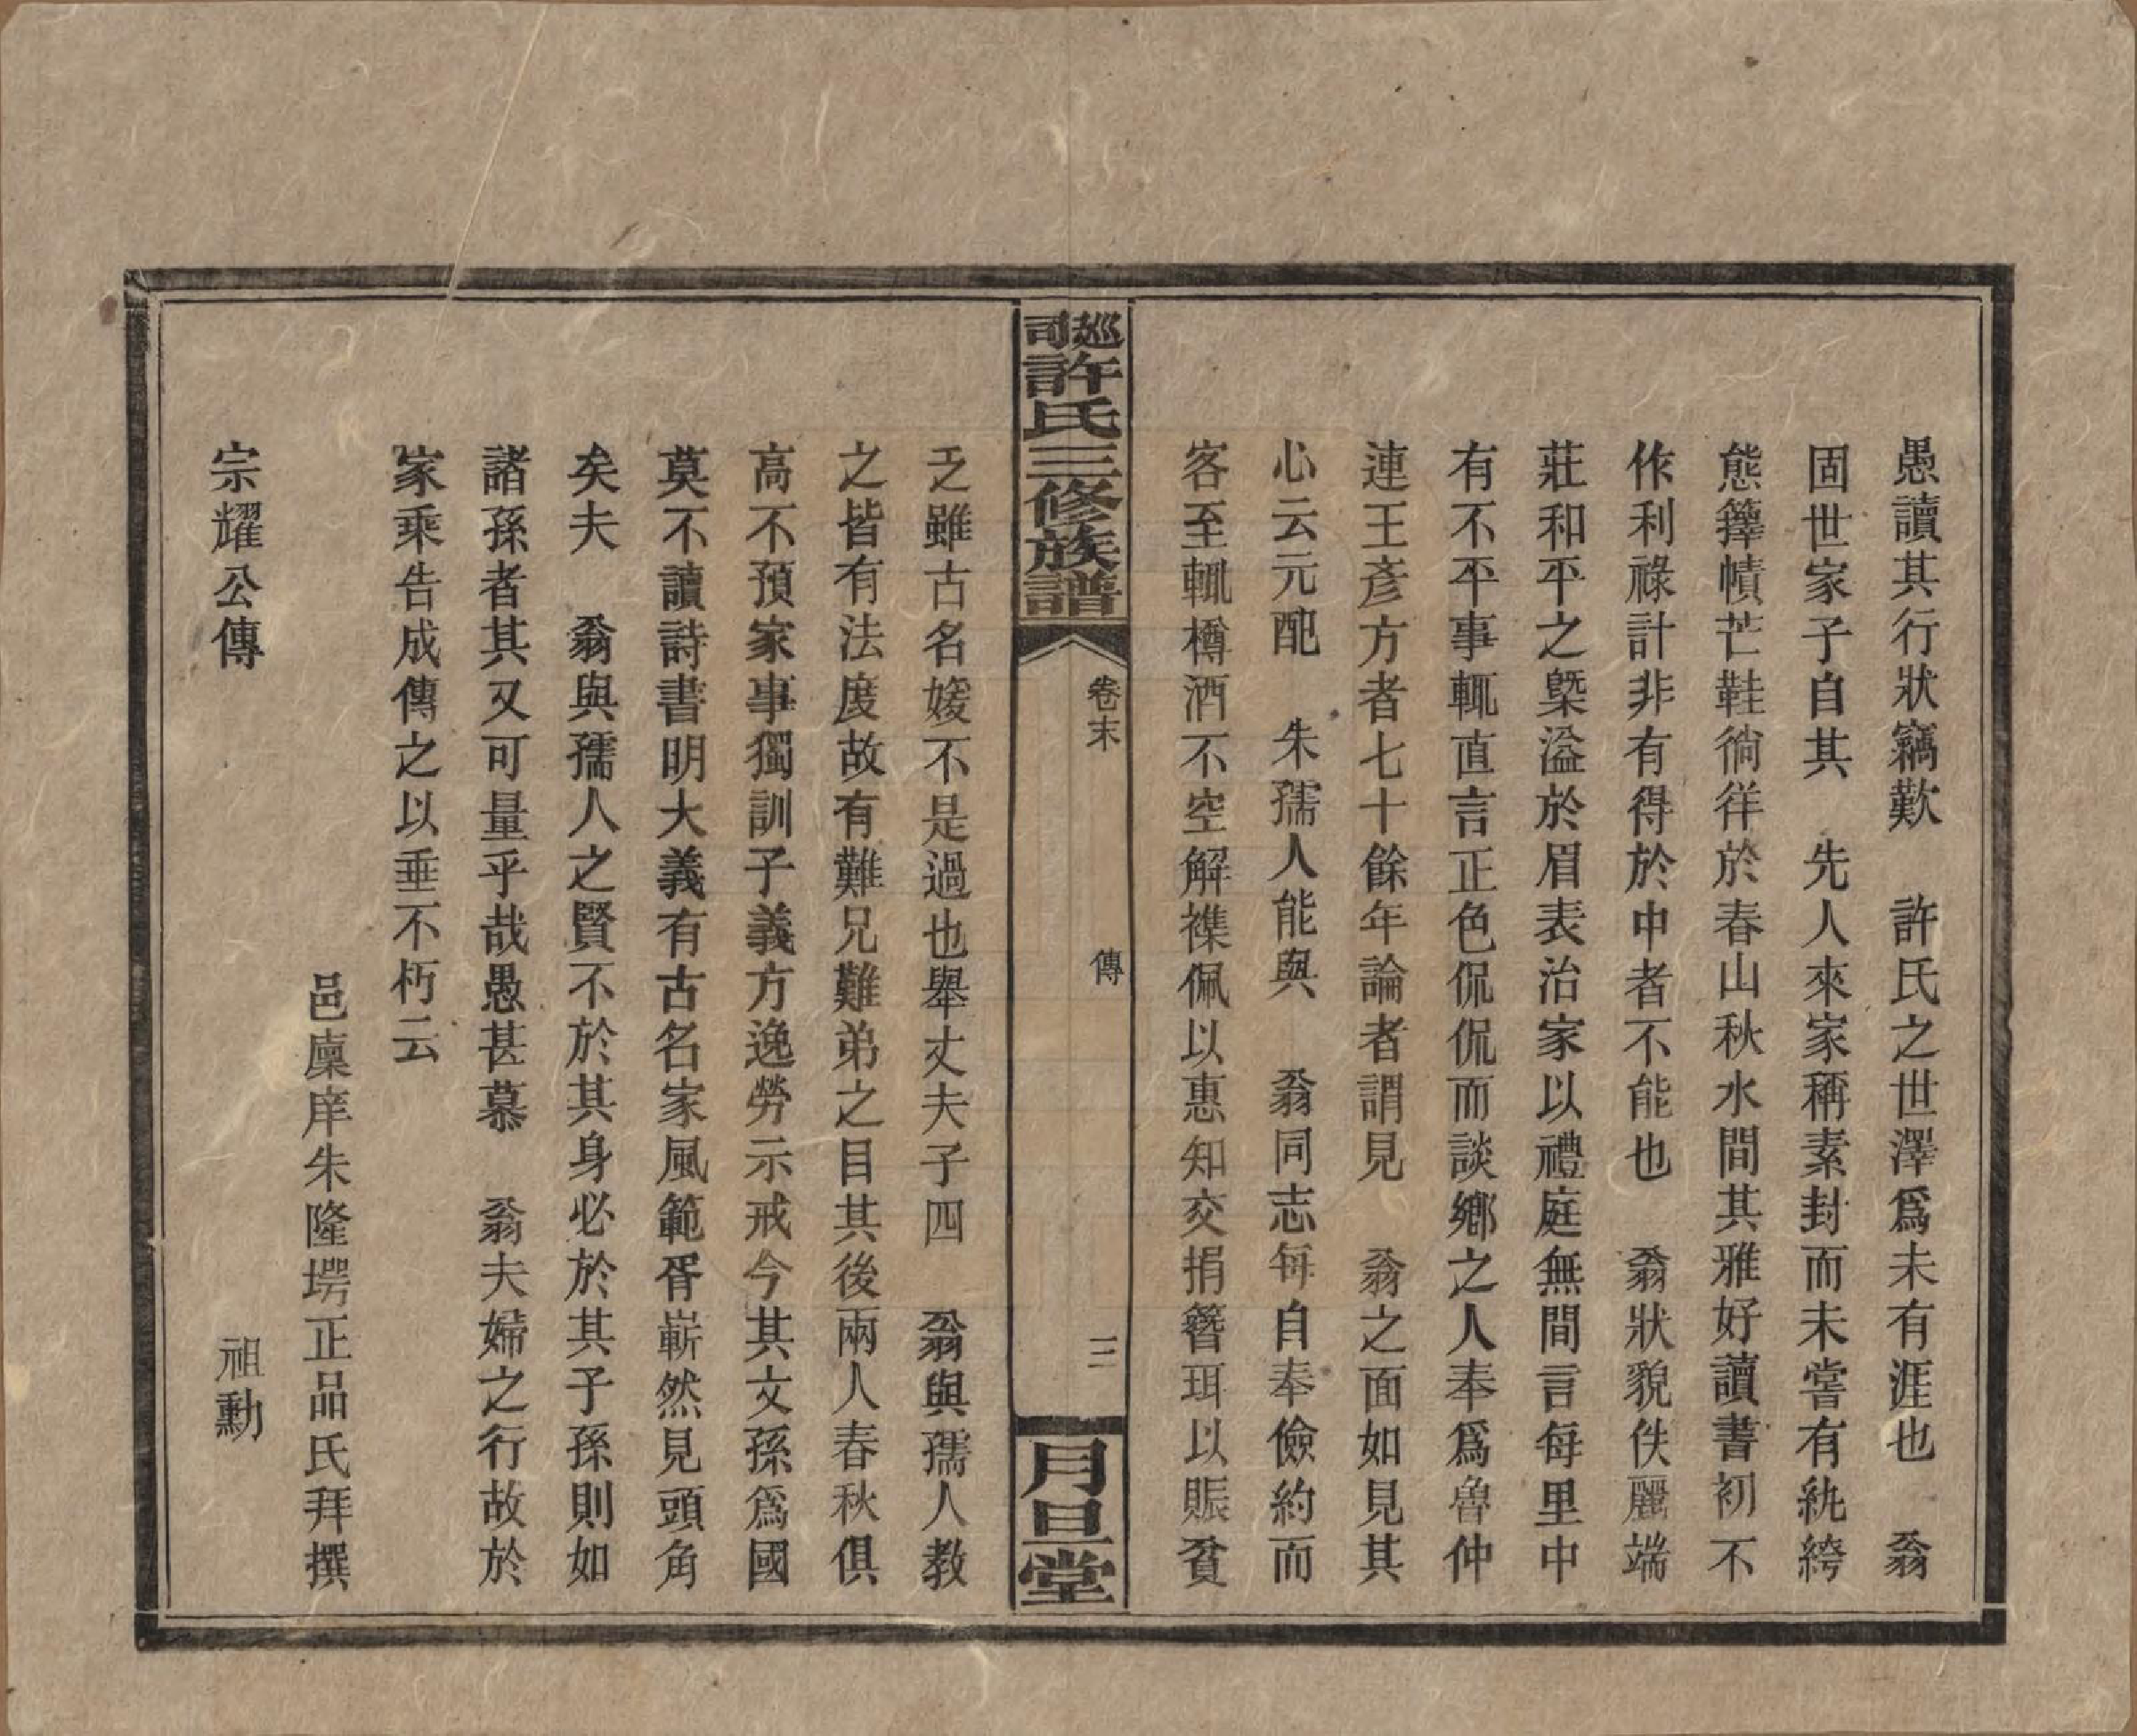 愚讀其行狀竊歎　許氏之世澤爲未有涯也　翁
固世家子自其　先人來家稱素封而未嘗有紈絝
態籜幘芒鞋徜徉於春山秋水間其雅好讀書初不
作利祿計非有得於中者不能也　翁狀貌佚麗端
莊和平之槩溢於眉表治家以禮庭無間言每里中
有不平事輒直言正色侃侃而談鄉之人奉爲魯仲
連王彥方者七十餘年論者謂見　翁之面如見其
心云元配　朱孺人能與　翁同志每自奉儉約而
客至輒樽酒不空解襍佩以惠知交捐簪珥以賑貧
巡司許氏三修族譜
卷末
傳
三
月旦堂
乏雖古名媛不是過也舉丈夫子四　翁與孺人教
之皆有法度故有難兄難弟之目其後兩人春秋俱
高不預家事獨訓子義方逸勞示戒今其文孫爲國
莫不讀詩書明大義有古名家風範胥嶄然見頭角
矣夫　翁與孺人之賢不於其身必於其子孫則如
諸孫者其又可量乎哉愚甚慕　翁夫婦之行故於
家乘告成傳之以垂不朽云
邑廩庠朱隆堮正品氏拜撰
宗耀公傳　祖勳